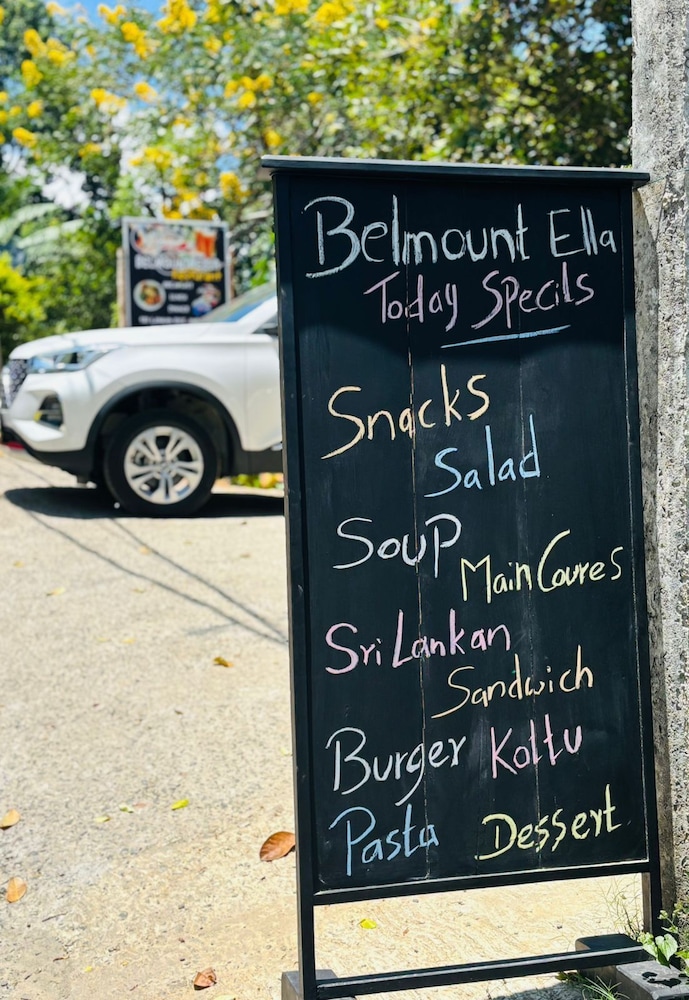 Belmount Ella
Today Specils
Snacks
Salad
Soup
Main Coures
Sri Lankan
Sandwich
Burger Kottu
Pasta Dessert